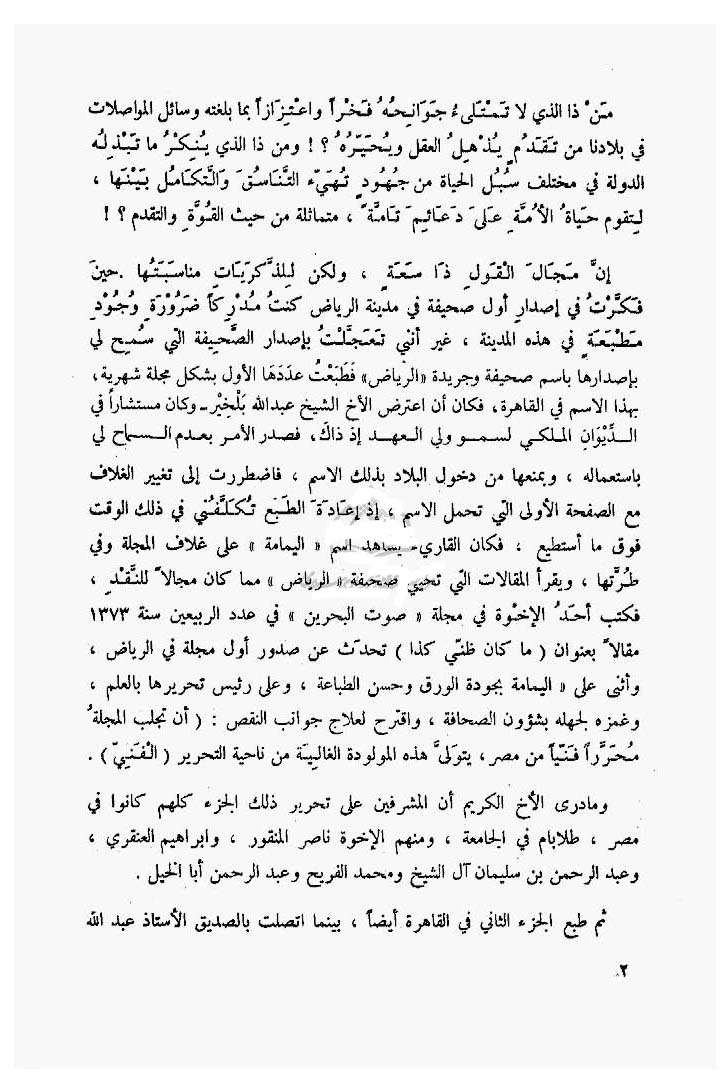 مَنْ ذا الذي لا تَمْتَلىءُ جَوَانِحُهُ فَخْراً واعْتِزَازاً بما بلغته وسائل المواصلات
في بلادنا من تَقَدُمٍ يُذْهِلُ العقل ويُحَيِّرُهُ ؟ ! ومن ذا الذي يُنكِرُ ما تَبْذِلهُ
الدولة في مختلف سُبُل الحياة من جُهُودٍ تُهَيِّء التَّنَاسُقَ وَالتَّكَامُل بَيْنَها ،
لِتقوم حَيَاةُ الأُمَّةِ عَلىَ دَعَائِمَ تَامَّةٍ ، متماثلة من حيث القُوَّةِ والتقدم ؟ !
إنَّ مَجَالَ الْقَولِ ذَا سَعَةٍ ، ولكن لِلذِّكرَيَاتِ مناسَبَتُها .حينَ
فَكَّرْتُ في إصدارِ أول صحيفة في مدينة الرياض كنتُ مُدْرِكاً ضَرُوْرَةَ وُجُوْدِ
مَطْبَعَةٍ في هذه المدينة ، غير أنني تَعَجَّلْتُ بإصدار الصَّحِيفة التي سُمِح لي
بإصدارها باسم صحيفة وجريدة «الرياض» فَطَبَعْتُ عدَدَهَا الأول بشكل مجلة شهرية،
بهذا الاسم في القاهرة، فكان أن اعترض الأخ الشيخ عبدالله بَلْخِيْر ــ وكان مستشاراً في
الـدِّيْوَانِ المـلكـي لسـمـو ولي العـهـد إذ ذاكَ، فصـدر الأمـر بعـدم السـماح لي
باستعماله ، وبمنعها من دخول البلاد بذلك الاسم ، فاضطررت إلى تغيير الغلاف
مع الصفحة الأولى التي تحمل الاسم ، إذ إعَادَةَ الطَبْعِ تُكَلِّفُني في ذلك الوقت
فوق ما أستطيع ، فكان القاري- يساهد اسم « اليمامة » على غلاف المجلة وفي
طُرَّتها ، ويقرأ المقالات التي تحيي صحيفة « الرياض » مما كان مجالاً للنَّقْدِ ،
فكتب أحَدُ الإخْوة في مجلة « صوت البحرين » في عدد الربيعين سنة ١٣٧٣
مقالاً بعنوان ( ما كان ظنّي كذا ) تحدَث عن صدور أول مجلة في الرياض ،
وأثنى على « اليمامة بجودة الورق وحسن الطباعة ، وعلى رئيس تحريرها بالعلم ،
وغمزه بجهله بشؤون الصحافة ، واقترح لعلاج جوانب النقص : ( أن تجلب المجلةُ
مُحَرِّراً فَنّيّاً من مصر ، يتولىَّ هذه المولودة الغاليةَ من ناحية التحرير ( الْفَنيّ ) .
ومادرى الأخ الكريم أن المشرفين على تحرير ذلك الجزء كلهم كانوا في
مصر ، طلابام في الجامعة ، ومنهم الإخوة ناصر المنقور ، وابراهيم العنقري ،
وعبد الرحمن بن سليمان آل الشيخ ومحمد الفريح وعبد الرحمن أبا الخيل .
ثم طبع الجزء الثاني في القاهرة أيضاً ، بينما اتصلت بالصديق الأستاذ عبد الله
٢